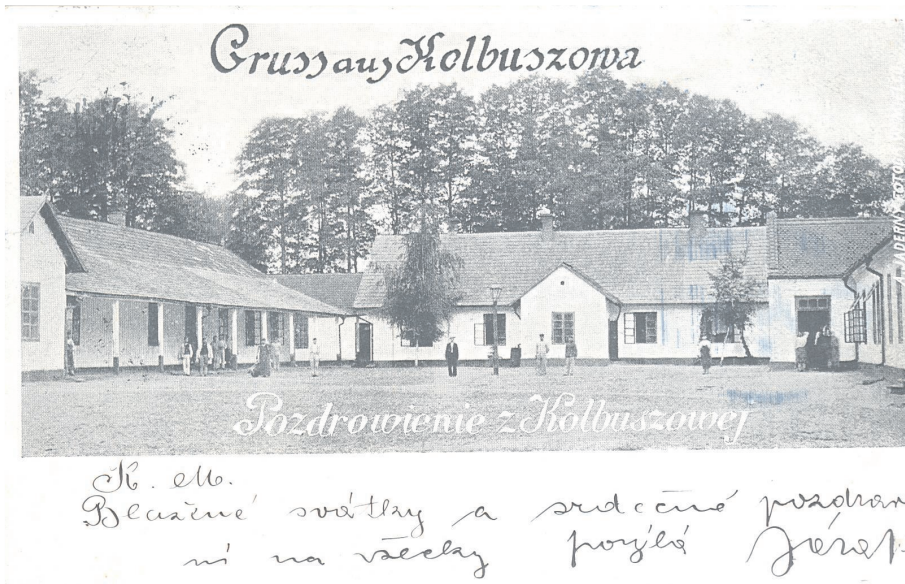 Gruss aus Kolbuszowa
Pozdrowienie z Kolbuszowej
K. M.
Blažené svátky a srdečné pozdrav
ní na všecky posýlá